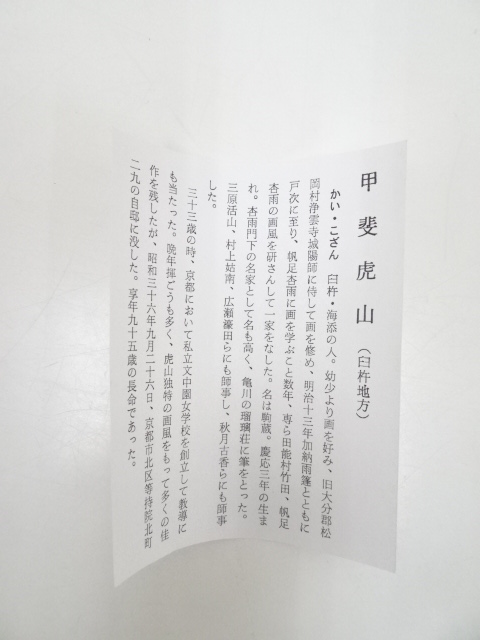 甲斐虎山（臼杵地方）
かい・こざん　臼杵・海添の人。幼少より画を好み、旧大分郡松
岡村浄雲寺城陽師に侍して画を修め、明治十三年加納雨篷とともに
戸次に至り、帆足杏雨に画を学ぶこと数年、専ら田能村竹田、帆足
杏雨の画風を研さんして一家をなした。名は駒蔵。慶応三年の生ま
れ。杏雨門下の名家として名も高く、亀川の瑠璃荘に筆をとった。
三原活山、村上姑南、広瀬濠田らにも師事し、秋月古香らにも師事
した。
三十三歳の時、京都において私立文中園女学校を創立して教導に
も当たった。晩年揮ごうも多く、虎山独特の画風をもって多くの佳
作を残したが、昭和三十六年九月二十六日、京都市北区等持院北町
二九の自邸に没した。享年九十五歳の長命であった。